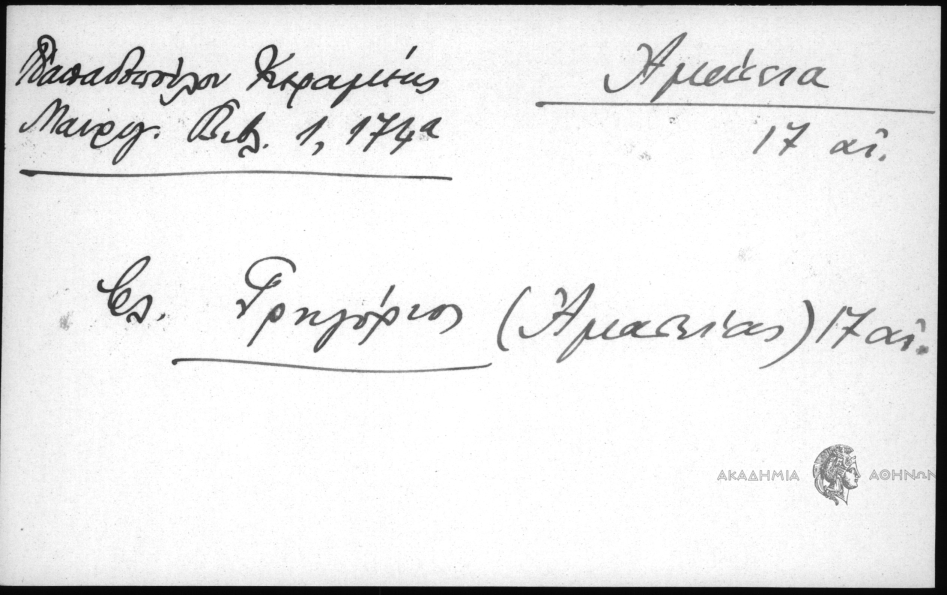 Παπαδοπούλου Κεραμέως
Μαυρογ. Βιβ. 1, 174α
Ἀμάσεια
17 αἰ.
Βλ. Γρηγόριος (Ἀμασείας) 17 αἰ.
ΑΚΑΔΗΜΙΑ ΑΘΗΝΩΝ